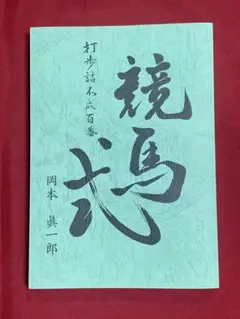 競馬式
打歩詰不成百番
岡本 眞一郎